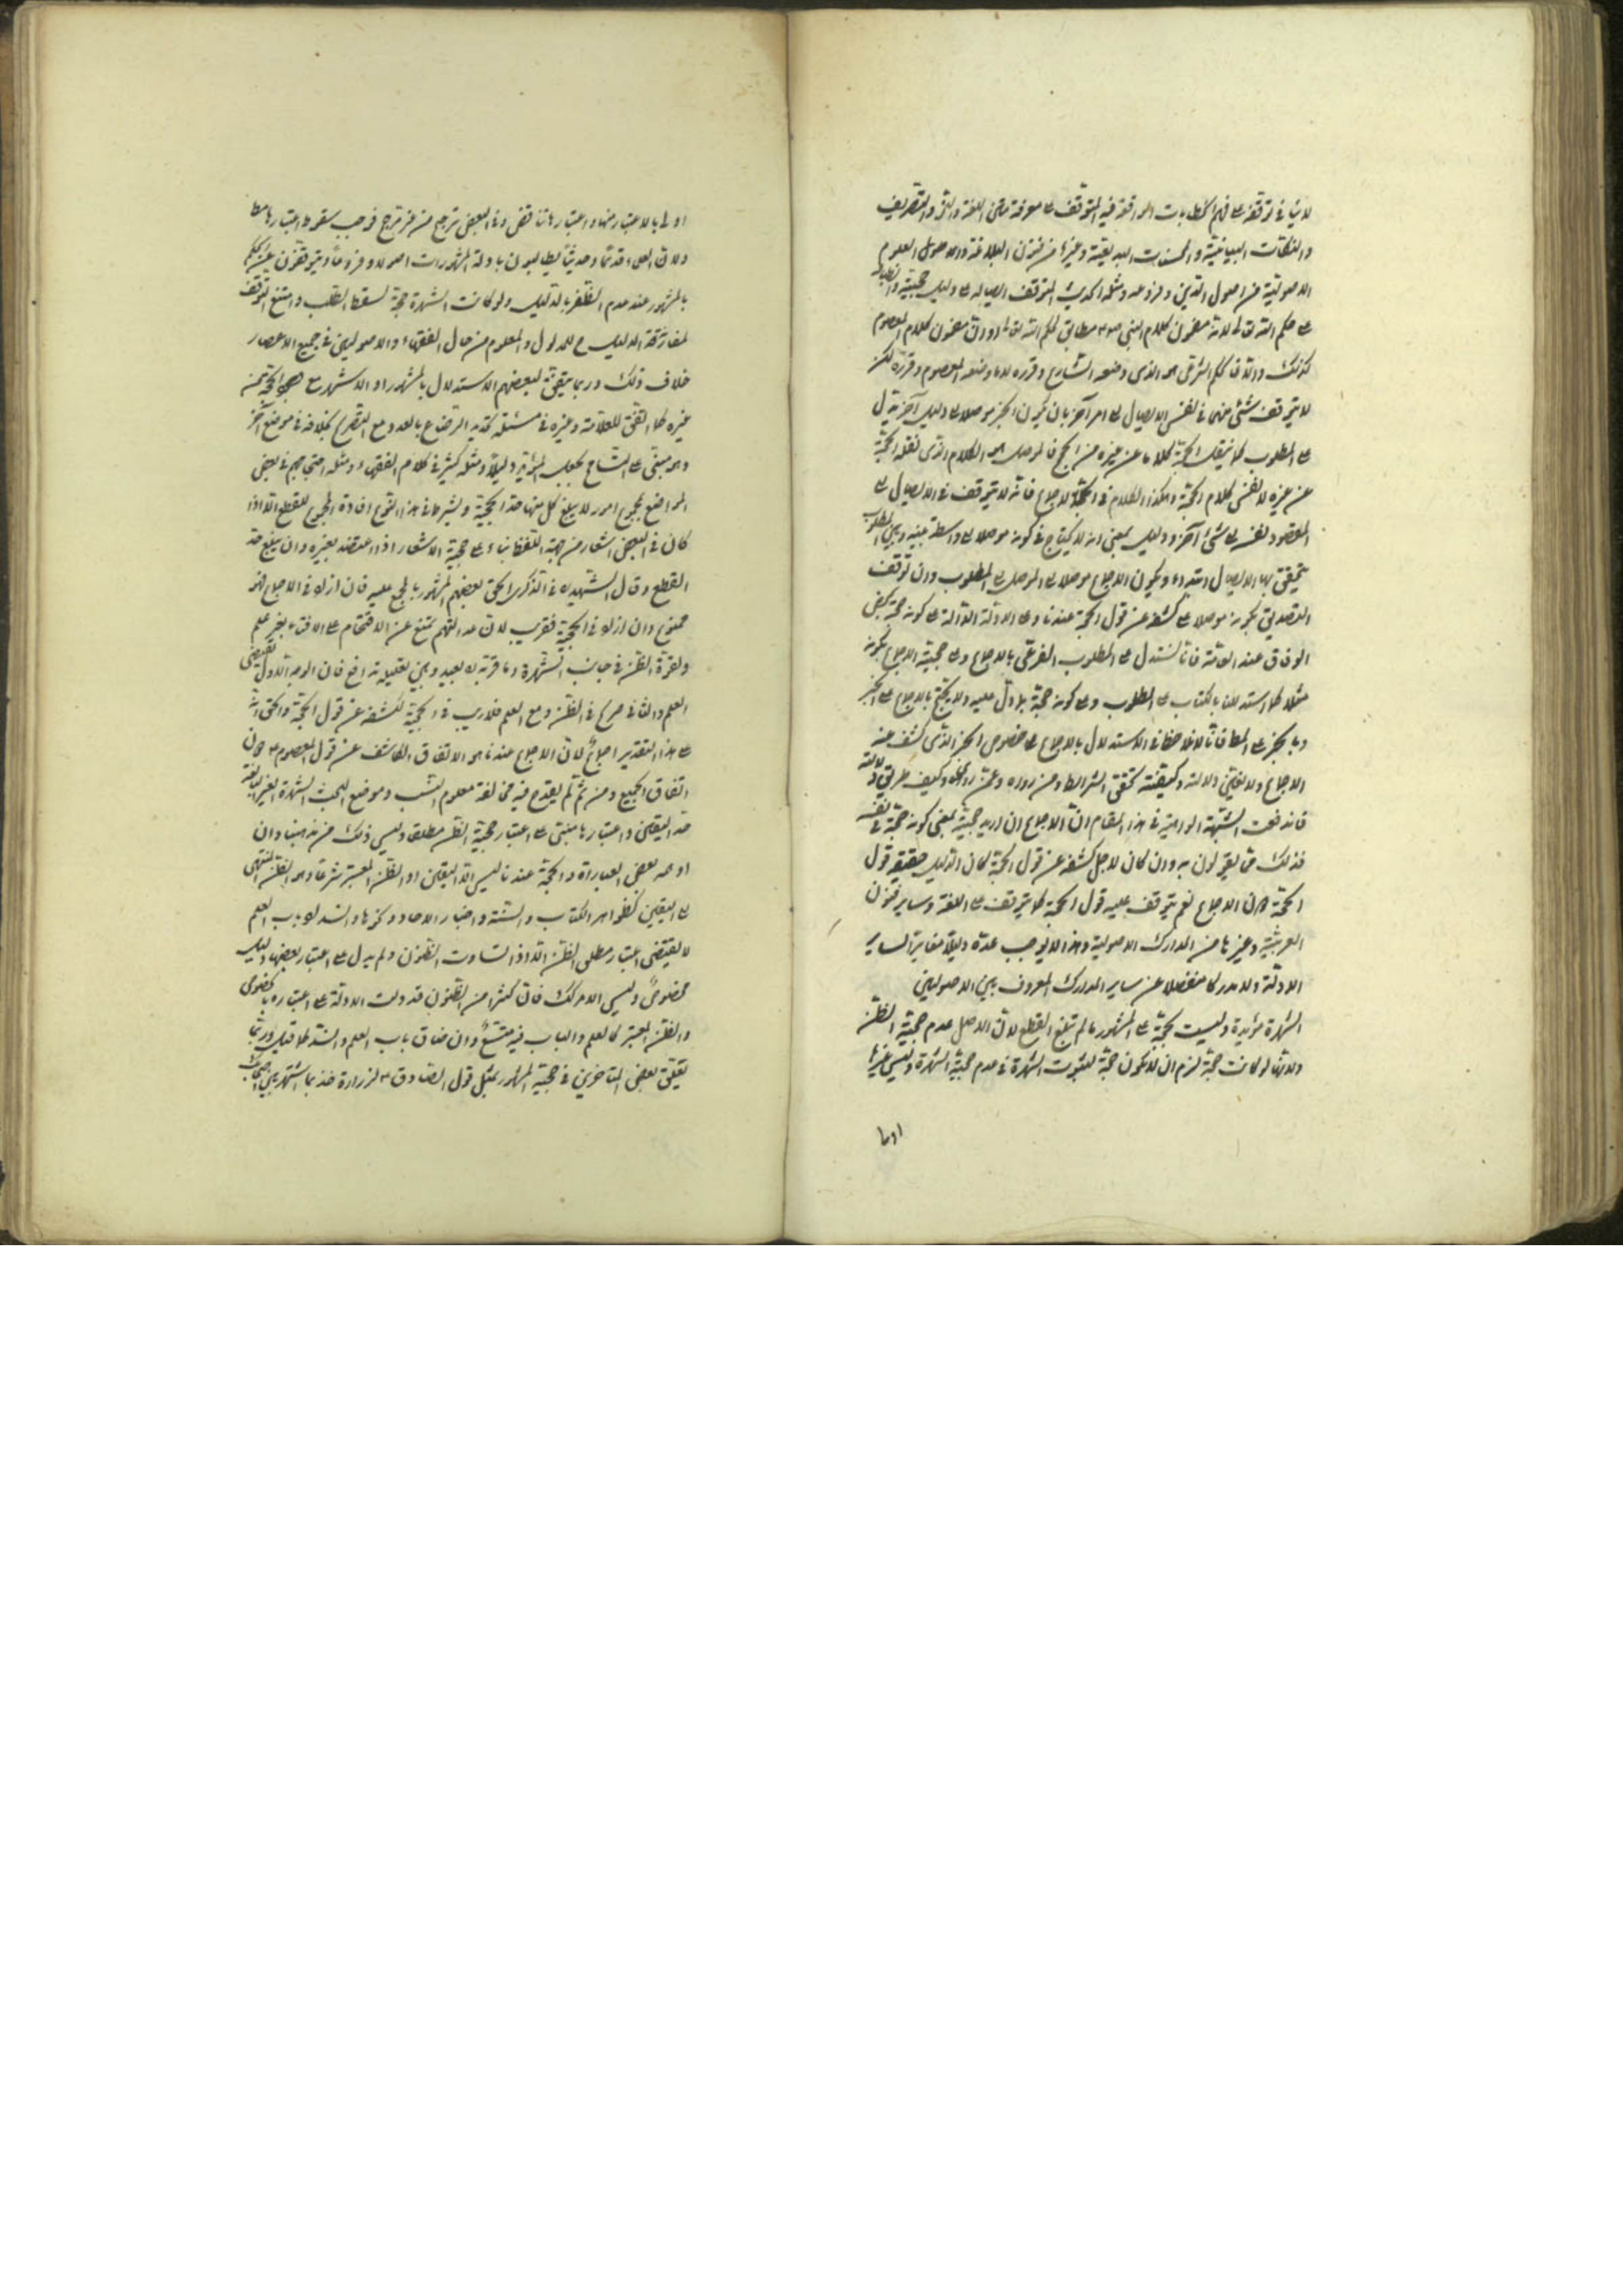 لا ينافي توقفه على فهم الخطابات الواقعة فيه المتوقف على معرفة متن اللغة والنحو والتصريف
والنكات البيانية والمحسنات البديعية وغيرها من فنون البلاغة والاصول العلوم
الاصولية من اصول الدين وفروعه ومثله الحديث المتوقف ايصاله على دليل حجيته وانطباقه
على حكم الله تعالى لانه مضمون كلام النبي ص مطابق لحكم الله تعالى اوان مضمون كلام المعصوم
كذلك واتفاق حكم الشرعي هو الذي وضعه الشارع وقرره لا ما وضعه المعصوم وقرره لكن
لا يتوقف شئ منهما في نفس الايصال على امر آخر بان يكون الخبر موصلا على دليل آخر يدل
على المطلوب كما ينقل الحجة كلاما عن غيره من الحجج فالموصل هو الكلام الذي نقله الحجة
عن غيره لا نفس كلام الحجة وهكذا الكلام في الاجماع فانه لا يتوقف في الايصال على
المقصود بنفسه على شئ آخر ودليل بمعنى انه لا يحتاج في كونه موصلا على واسطة بينه وبين المطلوب
يتحقق بها الايصال ابتداء ويكون الاجماع موصلا على الموصل الى المطلوب وان توقف
التصديق بكونه موصلا على كشفه عن قول الحجة عندنا وعلى الادلة الدالة على كونه حجة كبعض
الوفاق عند العامة فانا نستدل على المطلوب الفرعي بالاجماع وعلى حجية الاجماع بكونه
مثلا كما استدللنا بالكتاب على المطلوب وعلى كونه حجة بما دل عليه ولا يحتج بالاجماع على الخبر
وبالخبر على المطلوب فانا لا نلاحظ في الاستدلال بالاجماع على خصوص الخبر الذي كشف عنه
الاجماع ولا يتعين دلالته وكيفية تحقق الشرائط ومن رواه وعمن رواه وكيف طريق دلالته
فاندفعت الشبهة الواهية في هذا المقام ان الاجماع ان اريد حجيته بمعنى كونه حجة في نفسه
فذلك مما يقولون به وان كان لاجل كشفه عن قول الحجة كان الدليل حقيقة قول
الحجة دون الاجماع نعم يتوقف عليه قول الحجة كما يتوقف على اللغة وساير فنون
العربية وغيرها من المدارك الاصولية وهذا لا يوجب عده دليلا مغايرا لساير
الادلة ولا مدركا منفصلا عن ساير المدارك المعروف بين الاصوليين
الشهرة مؤيدة وليست بحجة على المشهور ما لم تبلغ القطع لان الاصل عدم حجية الظن
ولانها لو كانت حجة لزم ان لا تكون حجة لثبوت الشهرة في عدم حجية الشهرة وليس غيرها
اولى
اولى بالاعتبار منها واعتبارها تناقض وفي البعض ترجيح من غير مرجح فوجب سقوط اعتبارها مطلقا
ولان العلماء قديما وحديثا يطالبون بادلة المشهورات اصولا وفروعا ويتوقفون عن الحكم
بالمشهور عند عدم الظفر بالدليل ولو كانت الشهرة حجة لسقط الطلب وامتنع التوقف
لمفارقة الدليل للمدلول والمعلوم من حال الفقهاء والاصوليين في جميع الاعصار
خلاف ذلك وربما يتفق لبعضهم الاستدلال بالمشهور او الاشهر مع الحجة من
غيره كما اتفق للعلامة وغيره في مسئلة تحديد الرضاع بالعدد مع التصريح بخلافه في موضع آخر
وهو مبني على التسامح بجعل المؤيد دليلا ومثله كثير في كلام الفقهاء ومثله احتجاجهم في بعض
المواضع بمجموع امور لا يبلغ كل منها حد الحجية ويشترط في هذا النوع افادة المجموع للقطع الا اذا
كان في البعض اشعار من جهة اللفظ بناء على حجية الاشعار اذا اعتضد بغيره وان لم يبلغ حد
القطع وقال الشهيد ره في الذكرى الحق بعضهم المشهور بالمجمع عليه فان اراد في الاجماع فهو
ممنوع وان اراد في الحجية فقريب لان عدالتهم تمنع عن الاقتحام على الافتاء بغير علم
ولقوة الظن في جانب الشهرة وما قربه ره بعيد وبين تعليليه تدافع فان الوجه الاول يقتضي
العلم والثاني صريح في الظن ومع العلم فلا ريب في الحجية لكشفه عن قول الحجة والحق انه
على هذا التقدير اجماع لان الاجماع عندنا هو الاتفاق الكاشف عن قول المعصوم ع دون
اتفاق الجميع ومن ثم لم يقدح فيه مخالفة معلوم النسب وموضع البحث الشهرة الغير البالغة
حد اليقين واعتبارها مبني على اعتبار حجية الظن مطلقا وليس ذلك من مذهبنا وان
اوهمه بعض العبارات والحجة عندنا ليس الا اليقين او الظن المعتبر شرعا وهو الظن المنتهي
الى اليقين كظواهر الكتاب والسنة واخبار الاحاد ونحوها وانسداد باب العلم
لا يقتضي اعتبار مطلق الظن الا اذا تساوت الظنون ولم يدل على اعتبار بعضها دليل
مخصوص وليس الامر كذلك فان كثيرا من الظنون قد دلت الادلة على اعتباره بالخصوص
والظن المعتبر كالعلم والباب فيه متسع وان ضاق باب العلم وانسد كما قيل وربما
تعلق بعض المتاخرين في حجية المشهور بمثل قول الصادق ع لزرارة خذ بما اشتهر بين اصحابك